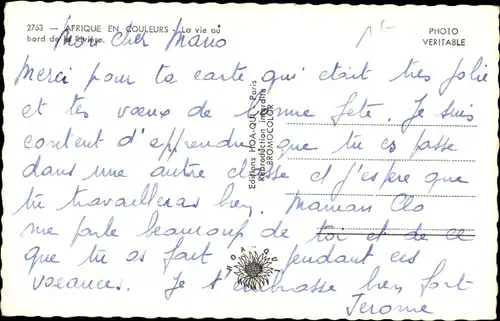 2763 — AFRIQUE EN COULEURS - La vie au
bord de la Rivière.
PHOTO
VERITABLE
Mon cher Mario
Merci pour ta carte qui était très jolie
et tes vœux de bonne fête. Je suis
content d'apprendre que tu es passé
dans une autre classe et j'espère que
tu travailleras bien. Maman Clo
me parle beaucoup de toi et de ce
que tu as fait pendant ces
vacances. Je t'embrasse bien fort
Jerome
Editions HOA-QUI - Paris
Reproduction interdite
BROMOCOLOR
HOA QUI